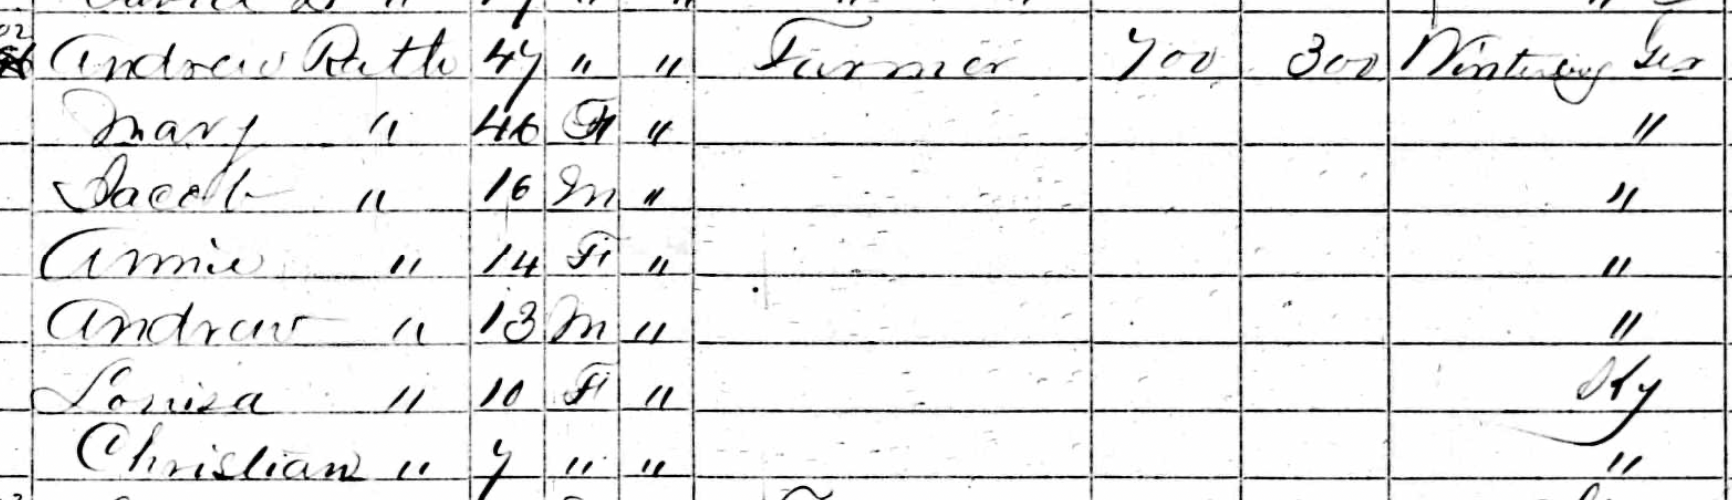 Andrew Ruth 47 " " Farmer 700 300 Winterberg Ger
Mary " 46 F "  "
Jacob " 16 M " "
Annie " 14 F " "
Andrew " 13 M " "
Louisa " 10 F " Ky
Christian " 7 " " "